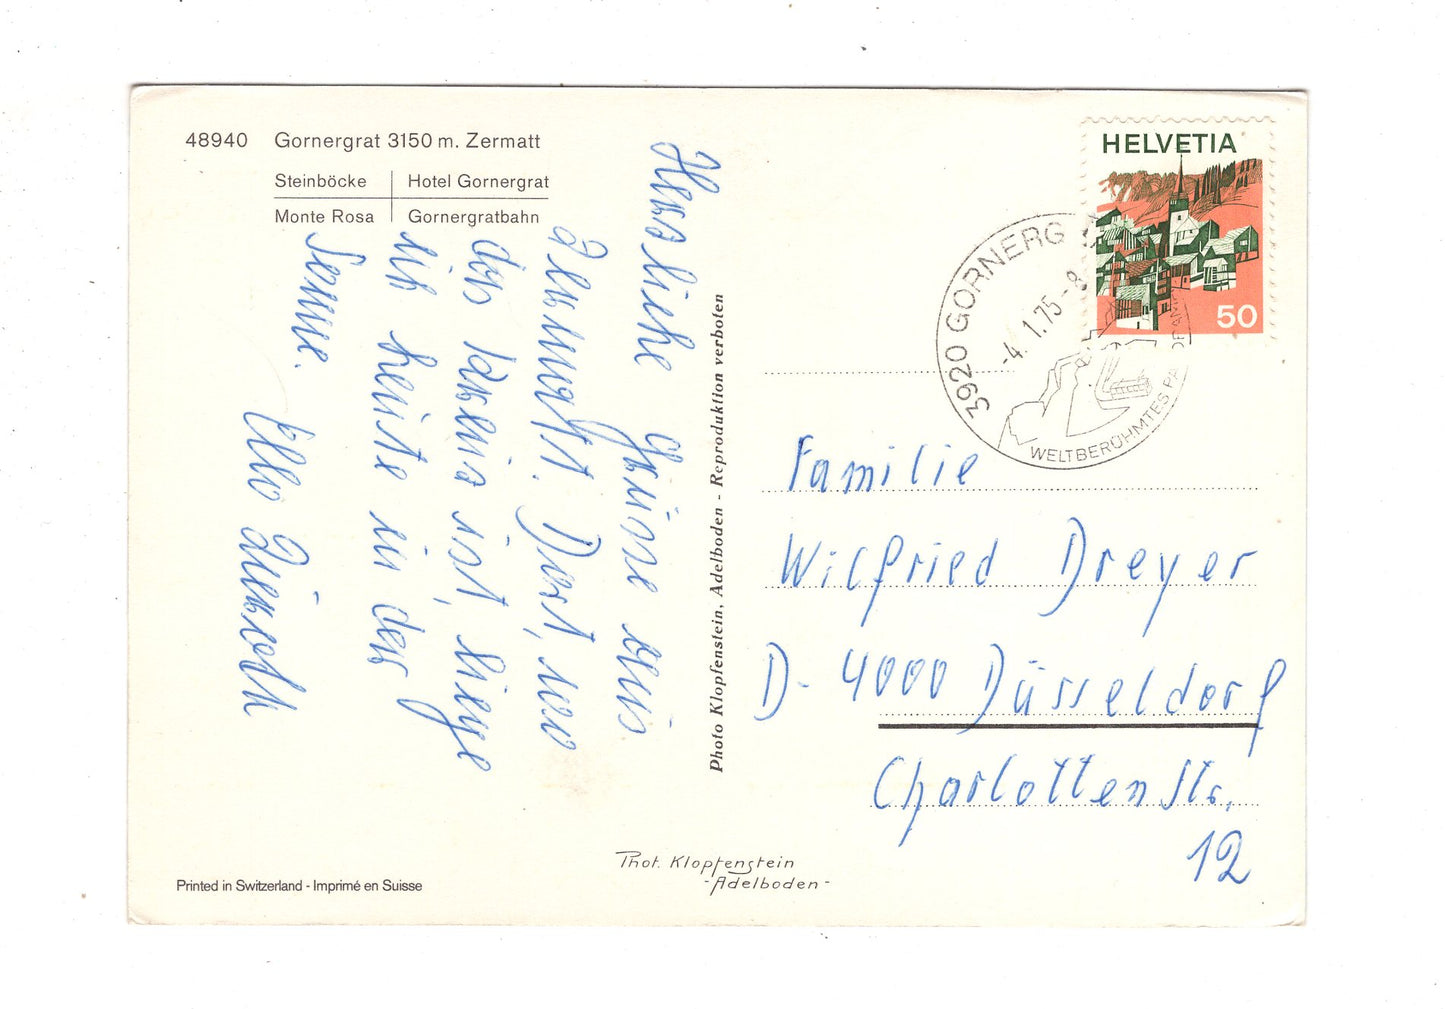 48940 Gornergrat 3150 m. Zermatt
Steinböcke Hotel Gornergrat
Monte Rosa Gornergratbahn
Herzliche Grüsse aus
Dort, wo
das Kreuz ist, liege
ich heute in der
Sonne.
HELVETIA
50
3920 GORNERG
-4.1.75-8
WELTBERÜHMTES PA
Photo Klopfenstein, Adelboden - Reproduktion verboten
Familie
Wilfried Dreyer
D-4000 Düsseldorf
Charlottenstr.
12
Phot. Klopfenstein
-Adelboden-
Printed in Switzerland - Imprimé en Suisse